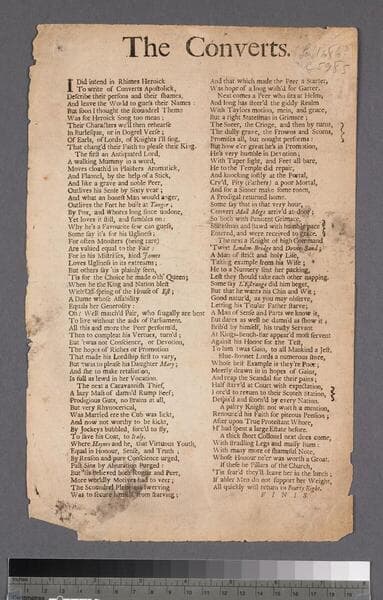 The Converts.
I Did intend in Rhimes Heroick
To write of Converts Apostolick,
Describe their persons and their shames,
And leave the World to guess their Names:
But soon I thought the scoundrel Theme
Was for Heroick Song too mean:
Their Characters we'll then rehearse
In Burlesque, or in Dogrel Verse;
Of Earls, of Lords, of Knights I'll sing,
That chang'd their Faith to please their King.
The first an Antiquated Lord,
A walking Mummy in a word,
Moves cloath'd in Plaisters Aromatick,
And Flannel, by the help of a Stick,
And like a grave and noble Peer,
Outlives his Sense by Sixty year;
And what an honest Man would anger,
Outlives the Fort he built at Tangier,
By Pox, and Whores long since undone,
Yet loves it still, and fumbles on:
Why he's a Favourite few can guess,
Some say it's for his Ugliness:
For often Monsters (being rare)
Are valued equal to the Fair:
For in his Mistresses, kind James
Loves Ugliness in its extreams;
But others say 'tis plainly seen,
'Tis for the Choice he made o'th' Queen;
When he the King and Nation blest
With Off-spring of the House of Est;
A Dame whose Affability
Equals her Generosity:
Oh! Well match'd Pair, who frugally are bent
To live without the aids of Parliament.
All this and more the Peer perform'd,
Then to compleat his Vertues, turn'd;
But 'twas not Conscience, or Devotion,
The hopes of Riches or Promotion
That made his Lordship first to vary,
But 'twas to please his Daughter Mary;
And she to make retaliation,
Is full as lewd in her Vocation.
The next a Caravanish Thief,
A lazy Mass of damn'd Rump Beef;
Prodigious Guts, no Brains at all,
But very Rhinocerical,
Was Married ere the Cub was lickt,
And now not worthy to be kickt,
By Jockeys bubbled, forc'd to fly,
To save his Coat, to Italy.
Where Haynes and he, that Virtuous Youth,
Equal in Honour, Sense, and Truth;
By Reason and pure Conscience urged,
Past Sins by Abjuration Purged:
But 'tis believed both Rogue and Peer,
More worldly Motives had to veer;
The Scoundrel Player
Was to secure himself from starving;
And that which made the Peer a Starter,
Was hope of a long wish'd for Garter.
Next comes a Peer who sits at Helm,
And long has steer'd the giddy Realm
With Taylors motion, mein, and grace,
But a right Statesman in Grimace;
The Sneer, the Cringe, and then by turns,
The dully grave, the Frowns and Scorns,
Promises all, but nought performs:
But how e'er great he's in Promotion,
He's very humble in Devotion;
With Taper light, and Feet all bare,
He to the Temple did repair,
And knocking softly at the Portal,
Cry'd, Pity (Fathers) a poor Mortal,
And for a Sinner make some room,
A Prodigal returned home.
Some say that in that very hour,
Convert Mall Megs arriv'd at door;
So both with Penitent Grimace,
Statesman and Bawd with humble pace
Entered, and were received to grace.
The next a Knight of high Command
'Twixt London Bridge and Dover Sand;
A Man of strict and holy Life,
Taking example from his Wife;
He to a Nunnery sent her packing,
Lest they should take each other napping.
Some say L'Estrange did him beget,
But that he wants his Chin and Wit;
Good natur'd, as you may observe,
Letting his Titular Father starve;
A Man of Sense and Parts we know it,
But dares as well be damn'd as show it;
Brib'd by himself, his trusty Servant
At Kings-bench-Bar appear'd most fervent
Against his Honor for the Test,
To him 'twas Gain, to all Mankind a Jest.
Blue-Bonnet Lords a numerous store,
Whose best Example is they're Poor;
Meerly drawn in in hopes of Gains,
And reap the Scandal for their pains;
Half starv'd at Court with expectation,
Forc'd to return to their Scotch Station,
Despis'd and scorn'd by every Nation.
A paltry Knight not worth a mention,
Renounc'd his Faith for piteous Pension;
After upon True Protestant Whore,
H' had spent a large Estate before.
A thick short Collonel next does come,
With stradling Legs and massy Bum:
With many more of shameful Note,
Whose Honour ne'er was worth a Groat.
If these be Pillars of the Church,
'Tis fear'd they'll leave her in the lurch;
If abler Men do not support her Weight,
All quickly will return to Forty Eight.
FINIS.